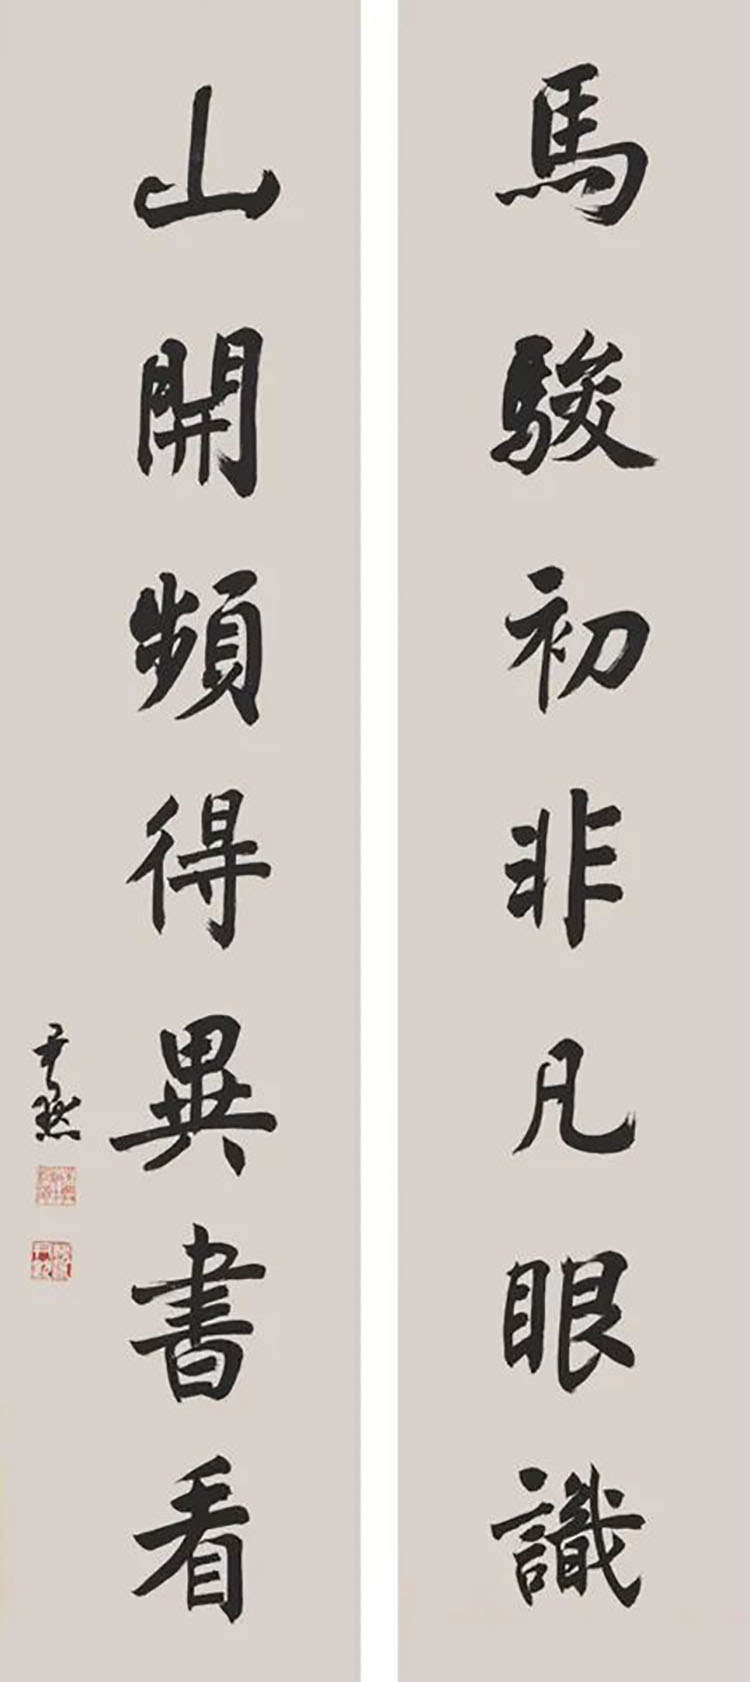 馬駿初非凡眼識
山開頻得異書看
尹默